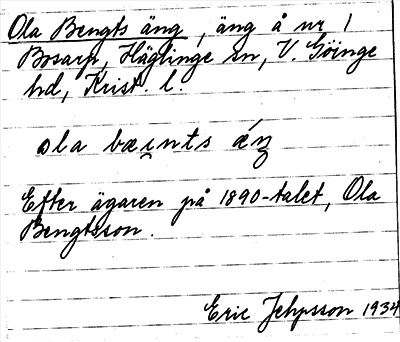 Ola Bengts äng, äng å nr 1
Bosarp, Häglinge sn, V. Göinge
hd, Krist. l.
ola bæi̯nts ǽŋ
Efter ägaren på 1890-talet, Ola
Bengtsson.
Eric Jehpsson 1934